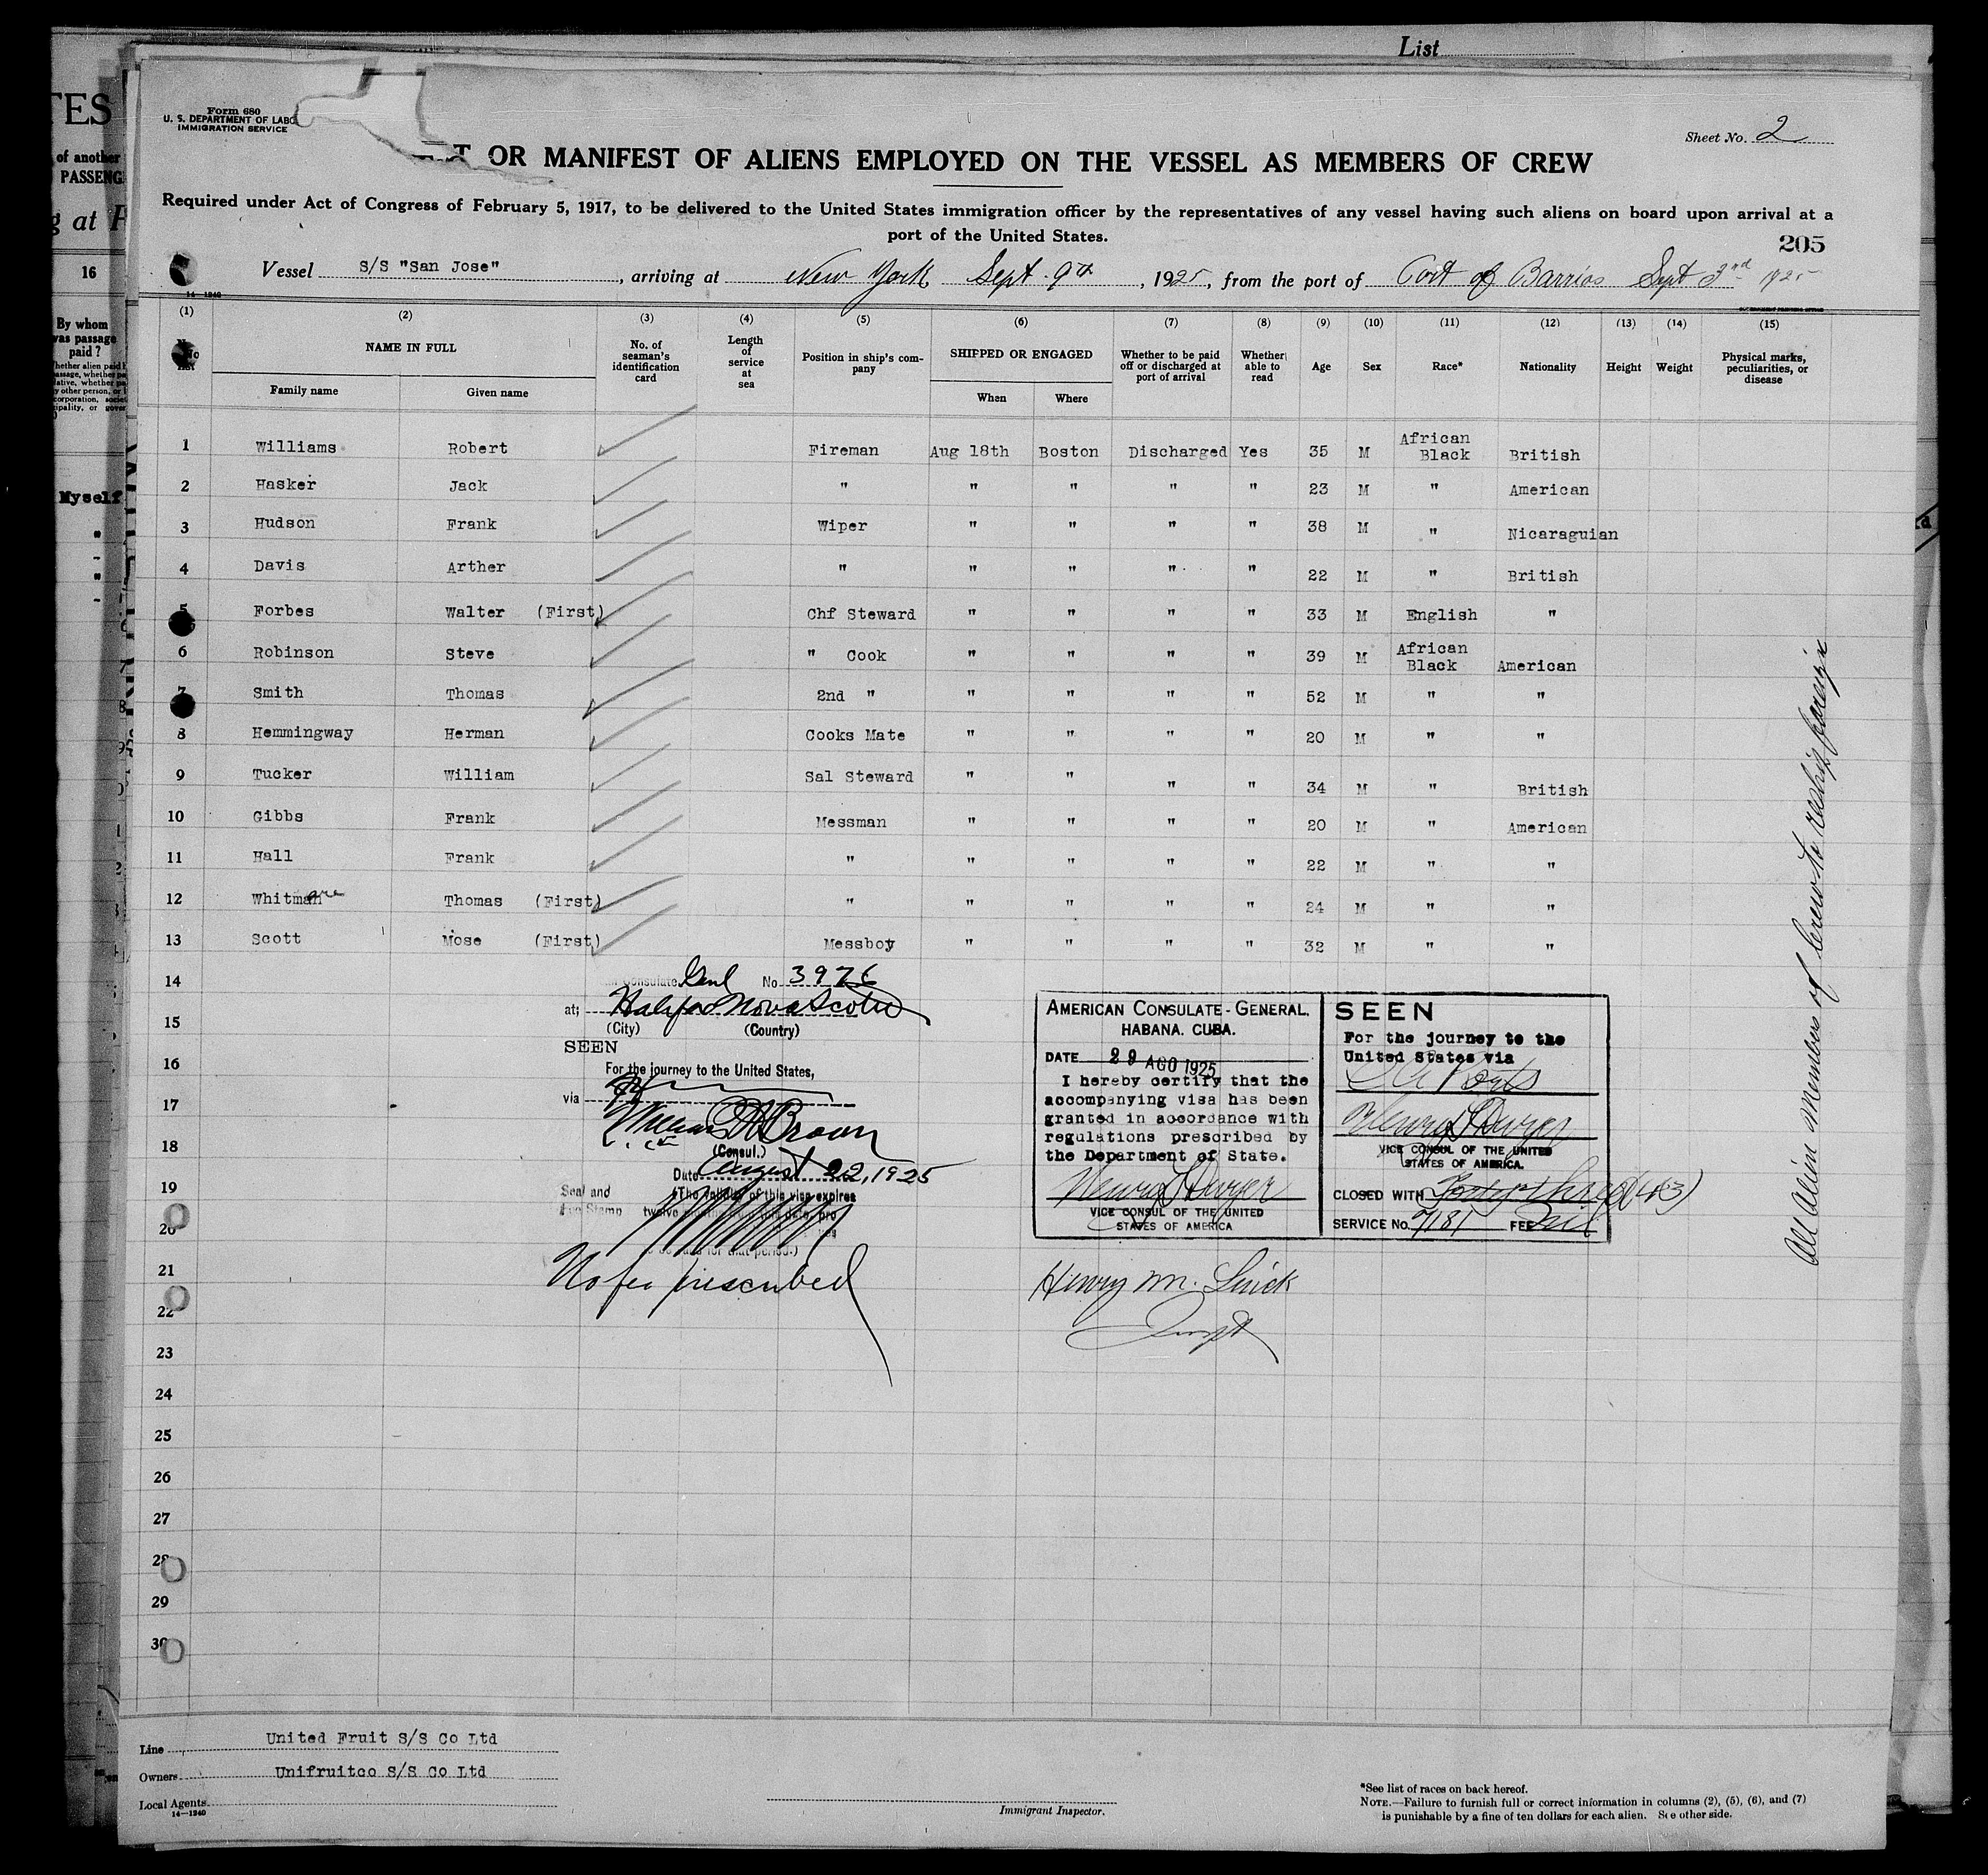 List
Form 680
U. S. DEPARTMENT OF LABO
IMMIGRATION SERVICE
Sheet No. 2
OR MANIFEST OF ALIENS EMPLOYED ON THE VESSEL AS MEMBERS OF CREW
Required under Act of Congress of February 5, 1917, to be delivered to the United States immigration officer by the representatives of any vessel having such aliens on board upon arrival at a
port of the United States.
205
Vessel S/S "San Jose", arriving at New York, Sept. 9th, 1925, from the port of Port of Barrios Sept 3rd 1925
14-1240
(1) (2) (3) (4) (5) (6) (7) (8) (9) (10) (11) (12) (13) (14) (15)
No list
NAME IN FULL
Family name Given name
No. of seaman's identification card
Length of service at sea
Position in ship's company
SHIPPED OR ENGAGED
When Where
Whether to be paid off or discharged at port of arrival
Whether able to read
Age
Sex
Race*
Nationality
Height
Weight
Physical marks, peculiarities, or disease
1 Williams Robert Fireman Aug 18th Boston Discharged Yes 35 M African Black British
2 Hasker Jack " " " " " 23 M " American
3 Hudson Frank Wiper " " " " 38 M " Nicaraguian
4 Davis Arther " " " " " 22 M " British
5 Forbes Walter (First) Chf Steward " " " " 33 M English "
6 Robinson Steve " Cook " " " " 39 M African Black American
7 Smith Thomas 2nd " " " " " 52 M " "
8 Hemmingway Herman Cooks Mate " " " " 20 M " "
9 Tucker William Sal Steward " " " " 34 M " British
10 Gibbs Frank Messman " " " " 20 M " American
11 Hall Frank " " " " " 22 M " "
12 Whitman Thomas (First) " " " " " 24 M " "
13 Scott Mose (First) Messboy " " " " 32 M " "
14
15
16
17
18
19
20
21
22
23
24
25
26
27
28
29
30
Consulate Genl No 3976
at; Halifax Nova Scotia
(City) (Country)
SEEN
For the journey to the United States,
via
Brown
(Consul.)
Date August 22, 1925
Seal and
(The validity of this visa expires
twelve months from this date, pro
for that period.)
No fee prescribed
AMERICAN CONSULATE-GENERAL,
HABANA. CUBA.
DATE 29 AGO 1925
I hereby certify that the
accompanying visa has been
granted in accordance with
regulations prescribed by
the Department of State.
Henry Dwyer
VICE CONSUL OF THE UNITED
STATES OF AMERICA
SEEN
For the journey to the
United States via
Henry Dwyer
VICE CONSUL OF THE UNITED
STATES OF AMERICA.
CLOSED WITH Forty-three (43)
SERVICE No. 7181 FEE
Henry M.
All Alien Members of Crew to reship foreign
Line United Fruit S/S Co Ltd
Owners Unifruitco S/S Co Ltd
Local Agents
14-1240
Immigrant Inspector.
*See list of races on back hereof.
NOTE.—Failure to furnish full or correct information in columns (2), (5), (6), and (7)
is punishable by a fine of ten dollars for each alien. See other side.
TES
of another
PASSENG
g at
16
By whom
was passage
paid?
Myself